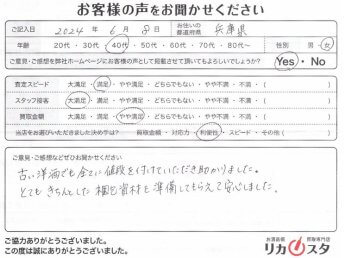 お客様の声をお聞かせください
ご記入日 2024年 6月 8日 お住いの都道府県 兵庫県
年齢 20代・30代・40代・50代・60代・70代・80代 性別 男・女
ご意見・ご感想を弊社ホームページにお客様の声として掲載させて頂いてもよろしいでしょうか? Yes・No
査定スピード 大満足・満足・やや満足・どちらでもない・やや不満・不満・( )
スタッフ接客 大満足・満足・やや満足・どちらでもない・やや不満・不満・( )
買取金額 大満足・満足・やや満足・どちらでもない・やや不満・不満・( )
当店をお選びいただきました決め手は? 買取金額・対応力・利便性・スピード・その他( )
ご意見・ご感想などぜひお聞かせください
古い洋酒でも全てに値段を付けていただき助かりました。
とてもきちんとした梱包資材も準備してもらえて安心しました。
ご協力ありがとうございました。
この度は誠にありがとうございました。
お酒高価買取専門店
リカスタ